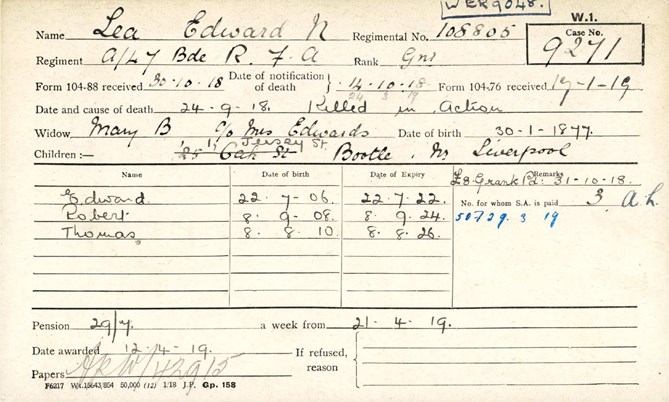 WER9048.
W.1.
Name Lea Edward N Regimental No. 108805 Case No. 9271
Regiment A/47 Bde R. F. A Rank Gnr
Form 104-88 received 30-10-18 Date of notification of death 14-10-18 Form 104-76 received 17-1-19
24 3 19
Date and cause of death 24-9-18. Killed in Action
Widow Mary B c/o Mrs Edwards Date of birth 30-1-1877.
Jersey St.
Children:— 25 Oak St Bootle, Nr Liverpool
Name Date of birth Date of Expiry Remarks
£8 Grant Pd: 31-10-18.
Edward 22-7-06. 22.7.22. No. for whom S.A. is paid 3 a.h.
Robert 8-9-08. 8.9.24. 50729. 3 19
Thomas 8.8.10. 8.8.26.
Pension 29/7. a week from 21-4-19.
Date awarded 12-4-19. If refused, reason
Papers
F6217 Wt.15643/854 50,000 (12) 1/18 J.P. Gp. 158